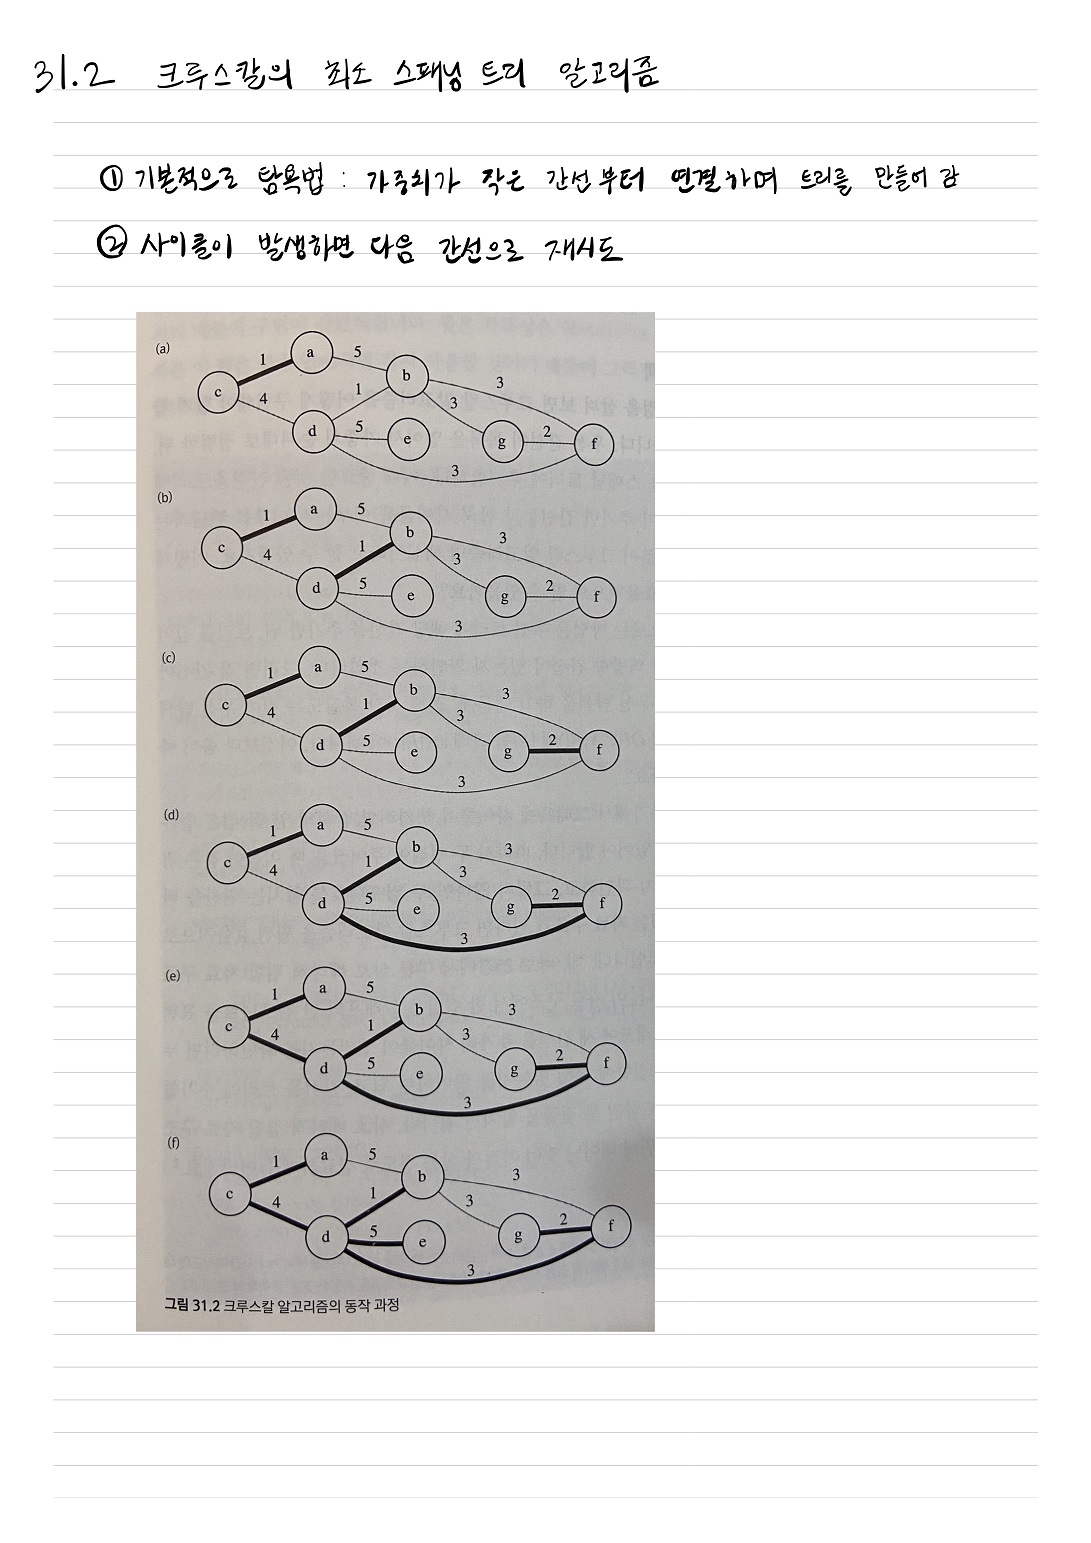 31.2 크루스칼의 최소 스패닝 트리 알고리즘
① 기본적으로 탐욕법 : 가중치가 작은 간선부터 연결하며 트리를 만들어 감
② 사이클이 발생하면 다음 간선으로 재시도
(a)
1 a 5
c 4 1 b 3
d 5 e 3 g 2 f
3
(b)
1 a 5
c 4 1 b 3
d 5 e 3 g 2 f
3
(c)
1 a 5
c 4 1 b 3
d 5 e 3 g 2 f
3
(d)
1 a 5
c 4 1 b 3
d 5 e 3 g 2 f
3
(e)
1 a 5
c 4 1 b 3
d 5 e 3 g 2 f
3
(f)
1 a 5
c 4 1 b 3
d 5 e 3 g 2 f
3
그림 31.2 크루스칼 알고리즘의 동작 과정